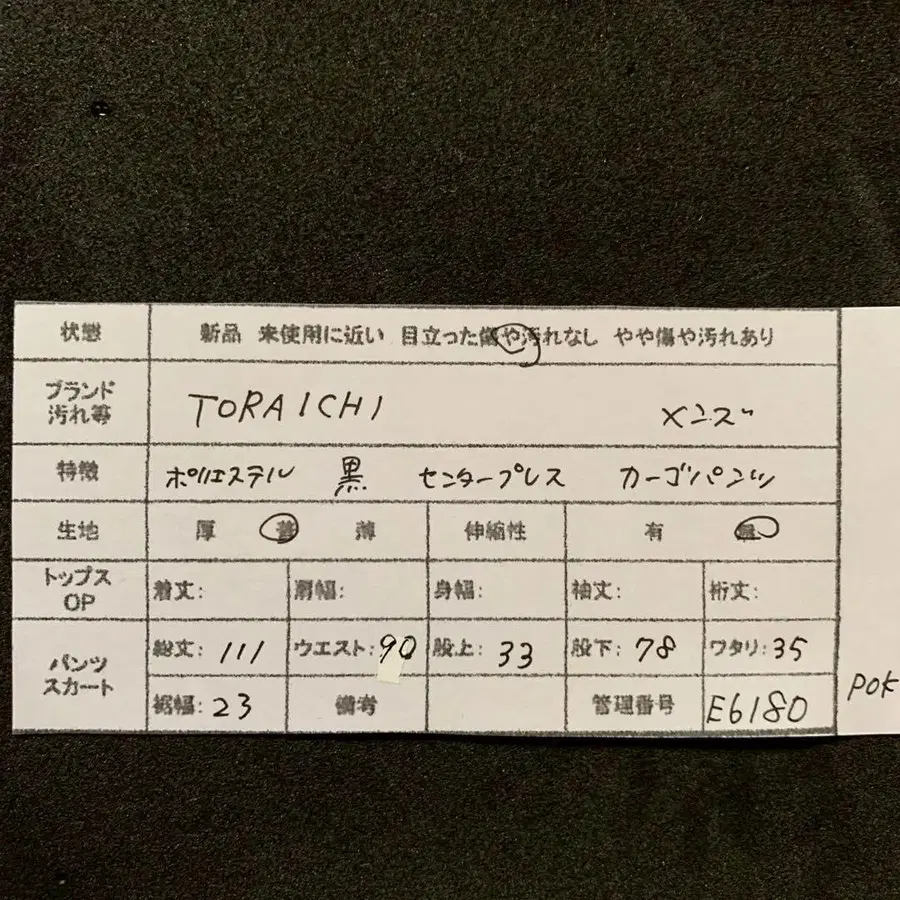 状態 新品 未使用に近い 目立った傷や汚れなし やや傷や汚れあり
ブランド
汚れ等
TORAICHI メンズ
特徴 ポリエステル 黒 センタープレス カーゴパンツ
生地 厚 普 薄 伸縮性 有 無
トップス
OP
着丈: 肩幅: 身幅: 袖丈: 裄丈:
パンツ
スカート
総丈: 111 ウエスト: 90 股上: 33 股下: 78 ワタリ: 35
裾幅: 23 備考 管理番号 E6180
POK